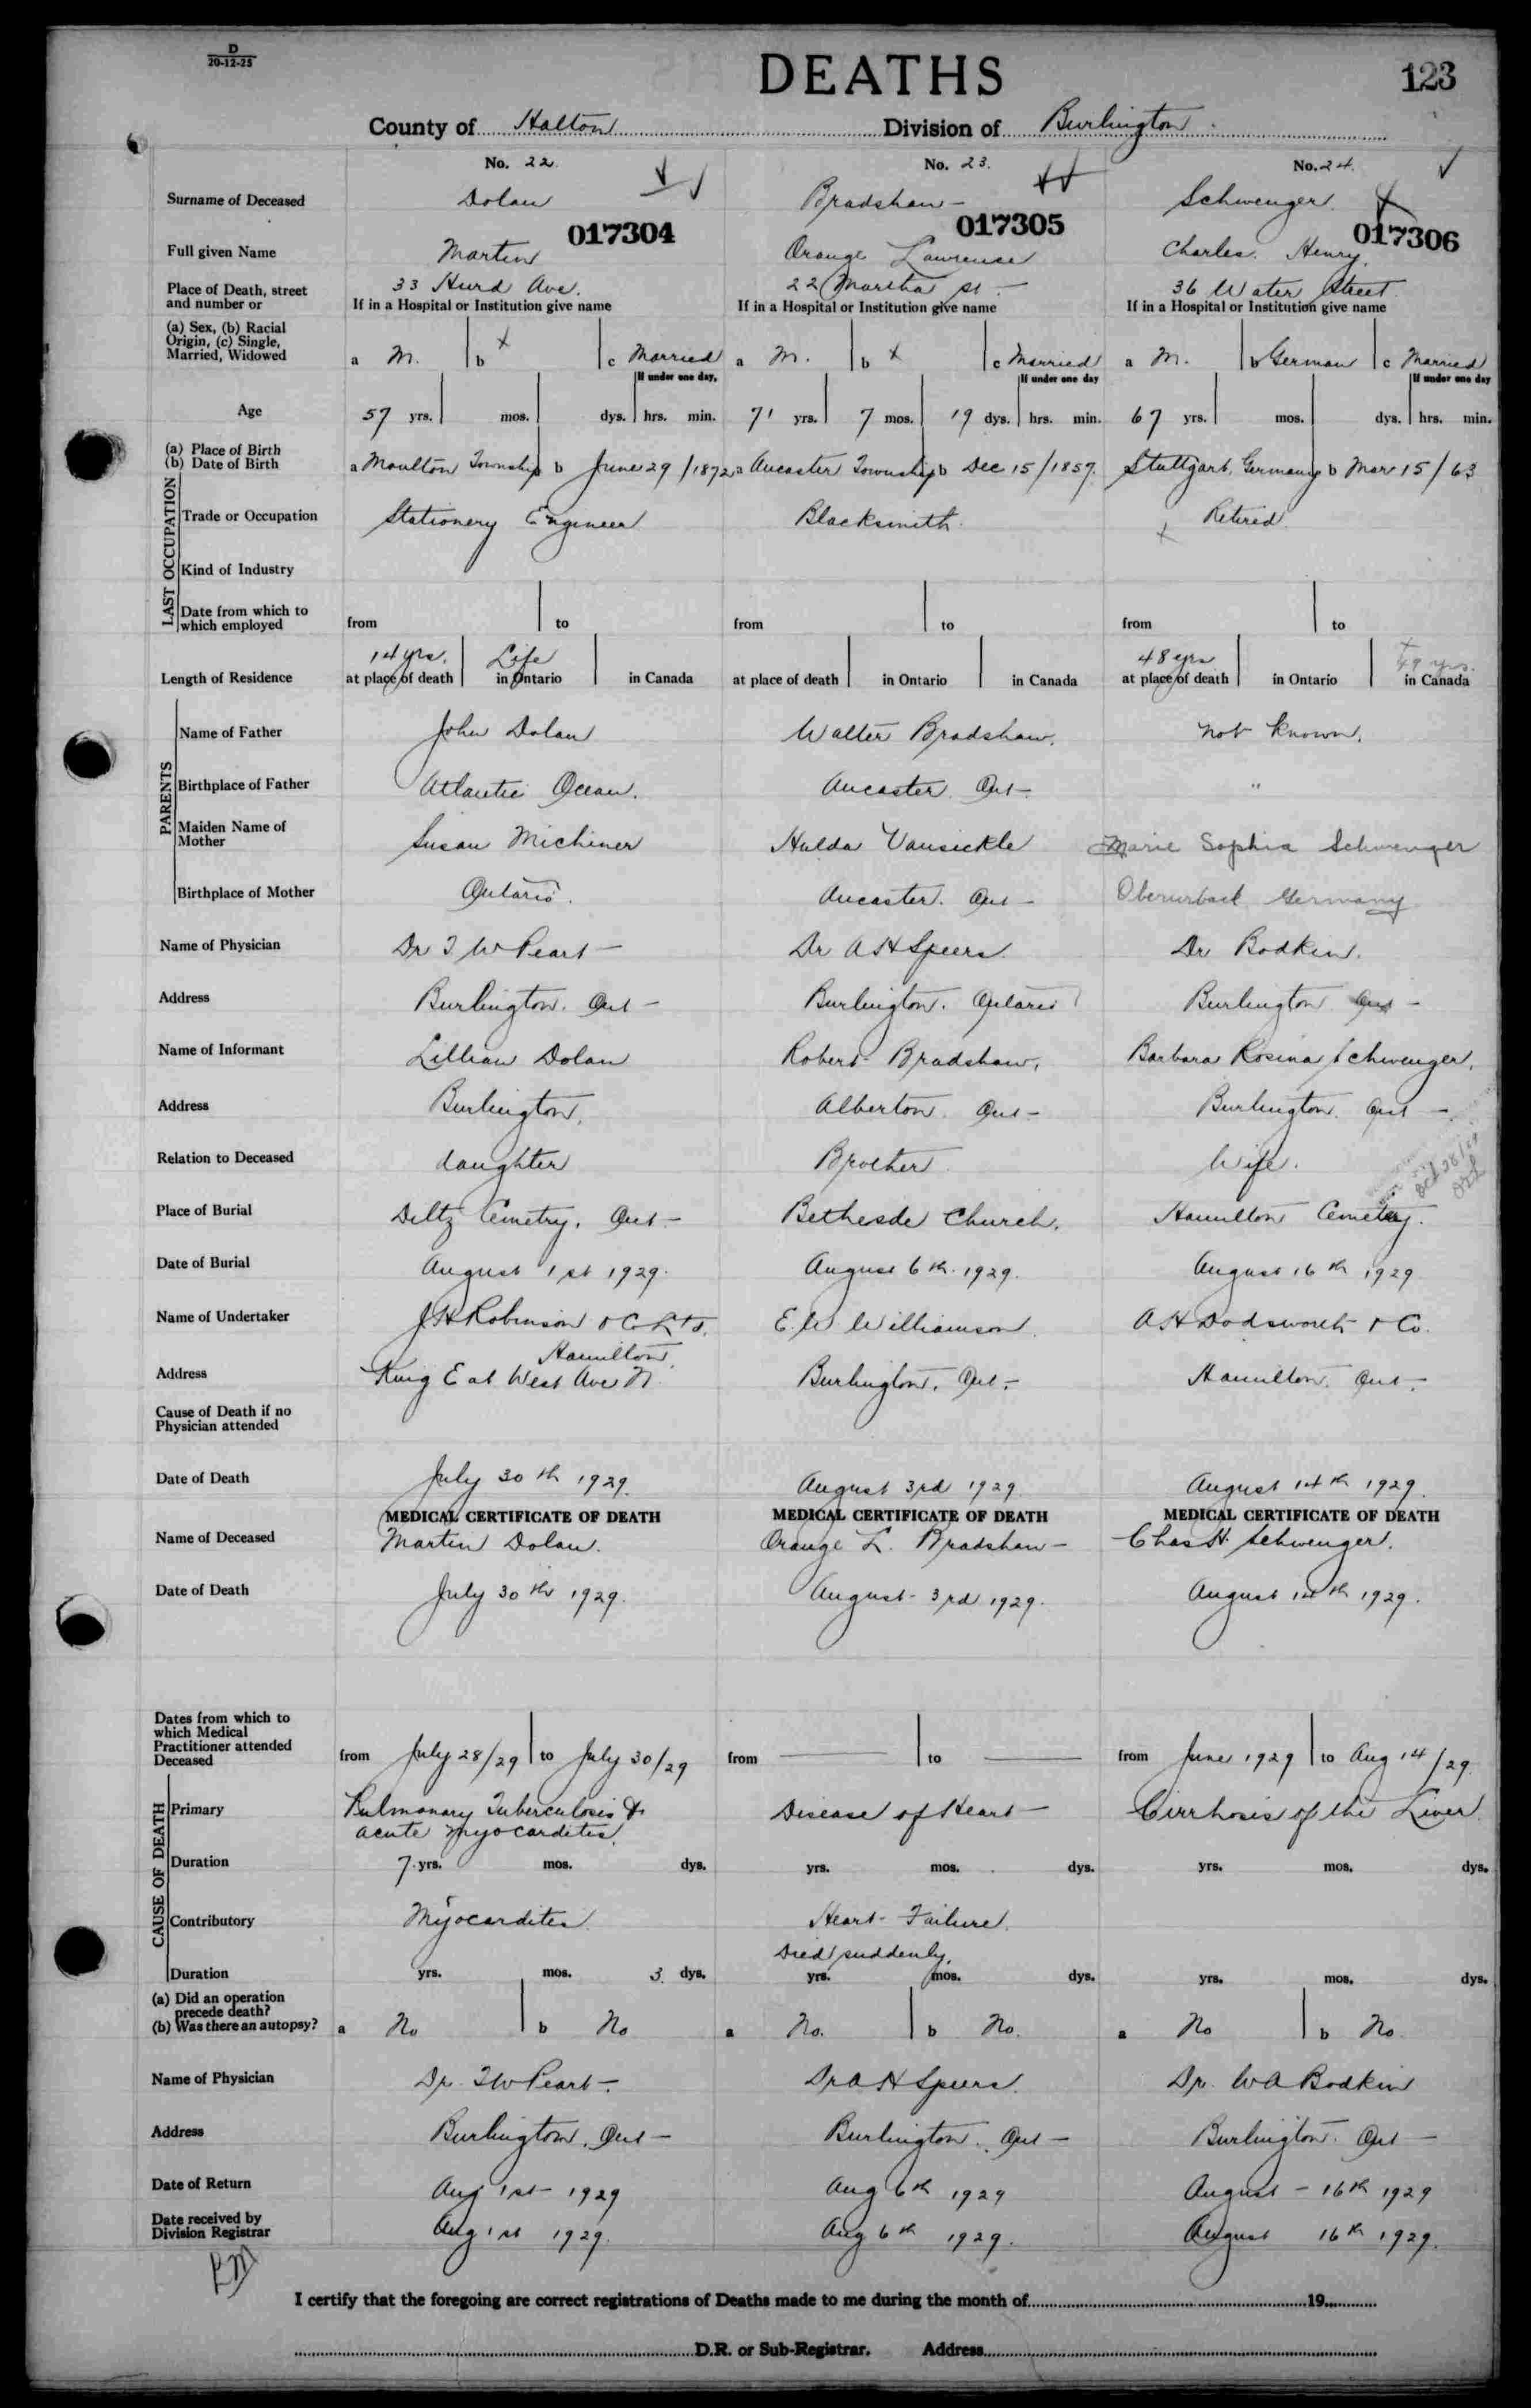 D
20-12-25
DEATHS
123
County of Halton Division of Burlington
No. 22. No. 23. No. 24.
Surname of Deceased Dolan Bradshaw Schwenger
017304 017305 017306
Full given Name Martin Orange Lawrence Charles Henry
Place of Death, street and number or 33 Hurd Ave. 22 Martha St 36 Water Street
If in a Hospital or Institution give name If in a Hospital or Institution give name If in a Hospital or Institution give name
(a) Sex, (b) Racial Origin, (c) Single, Married, Widowed a M. b x c Married a M. b x c Married a M. b German c Married
If under one day, If under one day If under one day
Age 57 yrs. mos. dys. hrs. min. 71 yrs. 7 mos. 19 dys. hrs. min. 67 yrs. mos. dys. hrs. min.
(a) Place of Birth (b) Date of Birth a Moulton Township b June 29/1872 a Ancaster Township b Dec 15/1857. Stuttgart, Germany b Mar 15/63
LAST OCCUPATION
Trade or Occupation Stationery Engineer Blacksmith Retired
Kind of Industry
Date from which to which employed from to from to from to
14 yrs. Life 48 yrs 49 yrs.
Length of Residence at place of death in Ontario in Canada at place of death in Ontario in Canada at place of death in Ontario in Canada
PARENTS
Name of Father John Dolan Walter Bradshaw. not known.
Birthplace of Father Atlantic Ocean. Ancaster Ont "
Maiden Name of Mother Susan Michiner Hulda Vansickle Marie Sophia Schwenger
Birthplace of Mother Ontario. Ancaster. Ont Germany
Name of Physician Dr T W Peart Dr A H Speers. Dr Bodkin.
Address Burlington. Ont Burlington. Ontario Burlington Ont
Name of Informant Lillian Dolan Robert Bradshaw, Barbara Rosina Schwenger.
Address Burlington, Alberton Ont Burlington Ont
Relation to Deceased daughter Brother Wife.
Oct 28/29
Place of Burial Diltz Cemetry, Ont Bethesde Church. Hamilton Cemetery.
Date of Burial August 1st 1929. August 6th 1929. August 16th 1929
Name of Undertaker J H Robinson & Co Ltd. E. W Williamson A H Dodsworth & Co.
Hamilton
Address King E at West Ave N. Burlington, Ont. Hamilton. Ont.
Cause of Death if no Physician attended
Date of Death July 30th 1929. August 3rd 1929 August 14th 1929.
MEDICAL CERTIFICATE OF DEATH MEDICAL CERTIFICATE OF DEATH MEDICAL CERTIFICATE OF DEATH
Name of Deceased Martin Dolan. Orange L. Bradshaw Chas H. Schwenger.
Date of Death July 30th 1929. August 3rd 1929. August 14th 1929.
Dates from which to which Medical Practitioner attended Deceased from July 28/29 to July 30/29 from to from June 1929 to Aug 14/29
CAUSE OF DEATH
Primary Pulmonary Tuberculosis & Disease of Heart Cirrhosis of the Liver
acute myocarditis.
Duration 7 yrs. mos. dys. yrs. mos. dys. yrs. mos. dys.
Contributory Myocarditis Heart Failure.
Died suddenly.
Duration yrs. mos. 3 dys. yrs. mos. dys. yrs. mos. dys.
(a) Did an operation precede death?
(b) Was there an autopsy? a No b No a No. b No. a No b No.
Name of Physician Dr. T W Peart Dr A H Speers. Dr. W A Bodkin
Address Burlington, Ont Burlington. Ont Burlington. Ont
Date of Return Aug 1st 1929 Aug 6th 1929 August 16th 1929
Date received by Division Registrar Aug 1st 1929. Aug 6th 1929. August 16th 1929.
I certify that the foregoing are correct registrations of Deaths made to me during the month of 19
D.R. or Sub-Registrar. Address